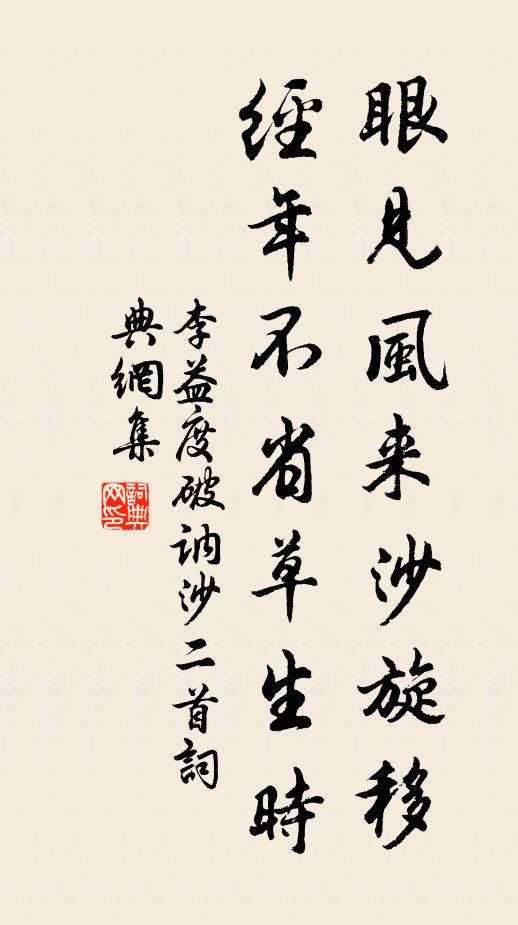 眼見風来沙旋移
經年不省草生時
李益度破訥沙二首詞
典網集
詞典
网印